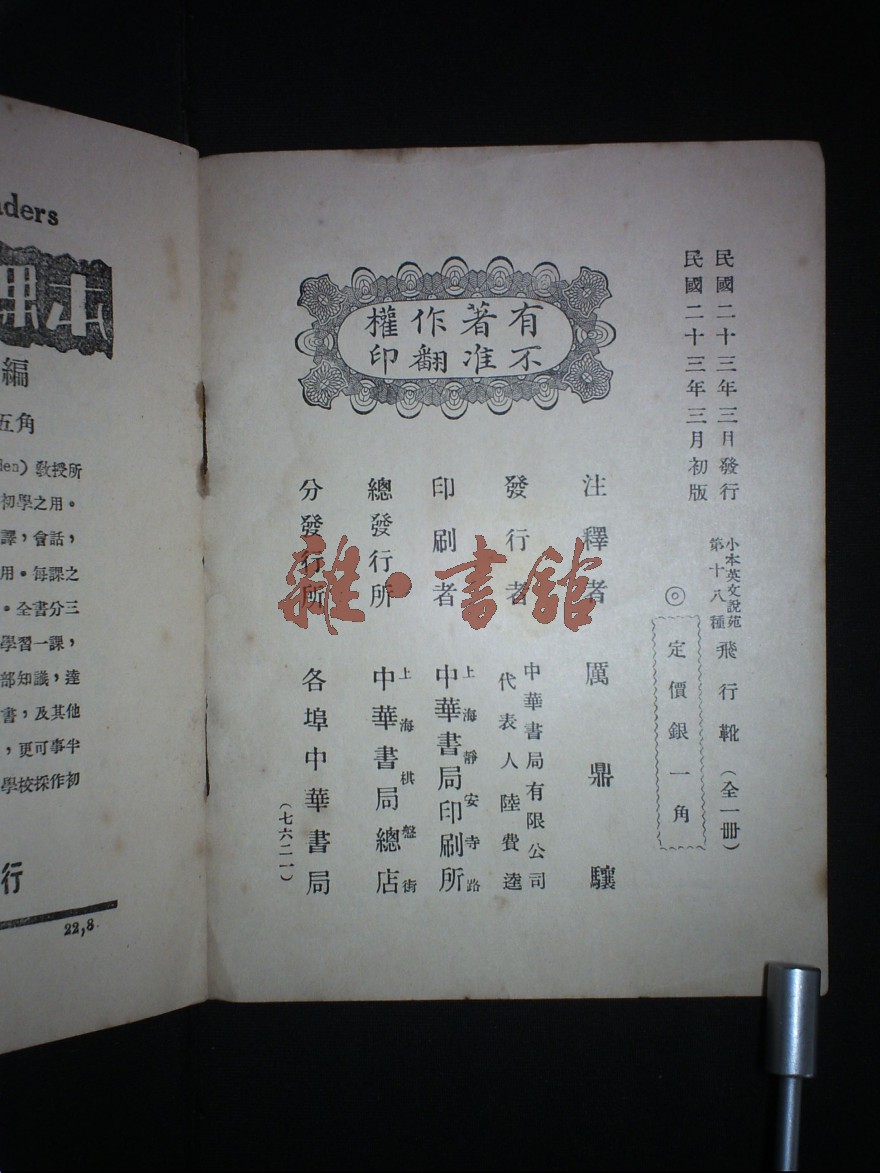 民國二十三年三月發行
民國二十三年三月初版
小本英文說苑
第十八種
飛行靴（全一冊）
◎定價銀一角
有著作權
不准翻印
注釋者 厲鼎驤
發行者 中華書局有限公司
代表人陸費逵
印刷者 上海靜安寺路
中華書局印刷所
總發行所 上海棋盤街
中華書局總店
分發行所 各埠中華書局
（七六二一）
雜·書館
aders
課本
編
五角
den）教授所
初學之用。
譯，會話，
用。每課之
。全書分三
學習一課，
部知識，達
書，及其他
，更可事半
學校採作初
行
22,8.